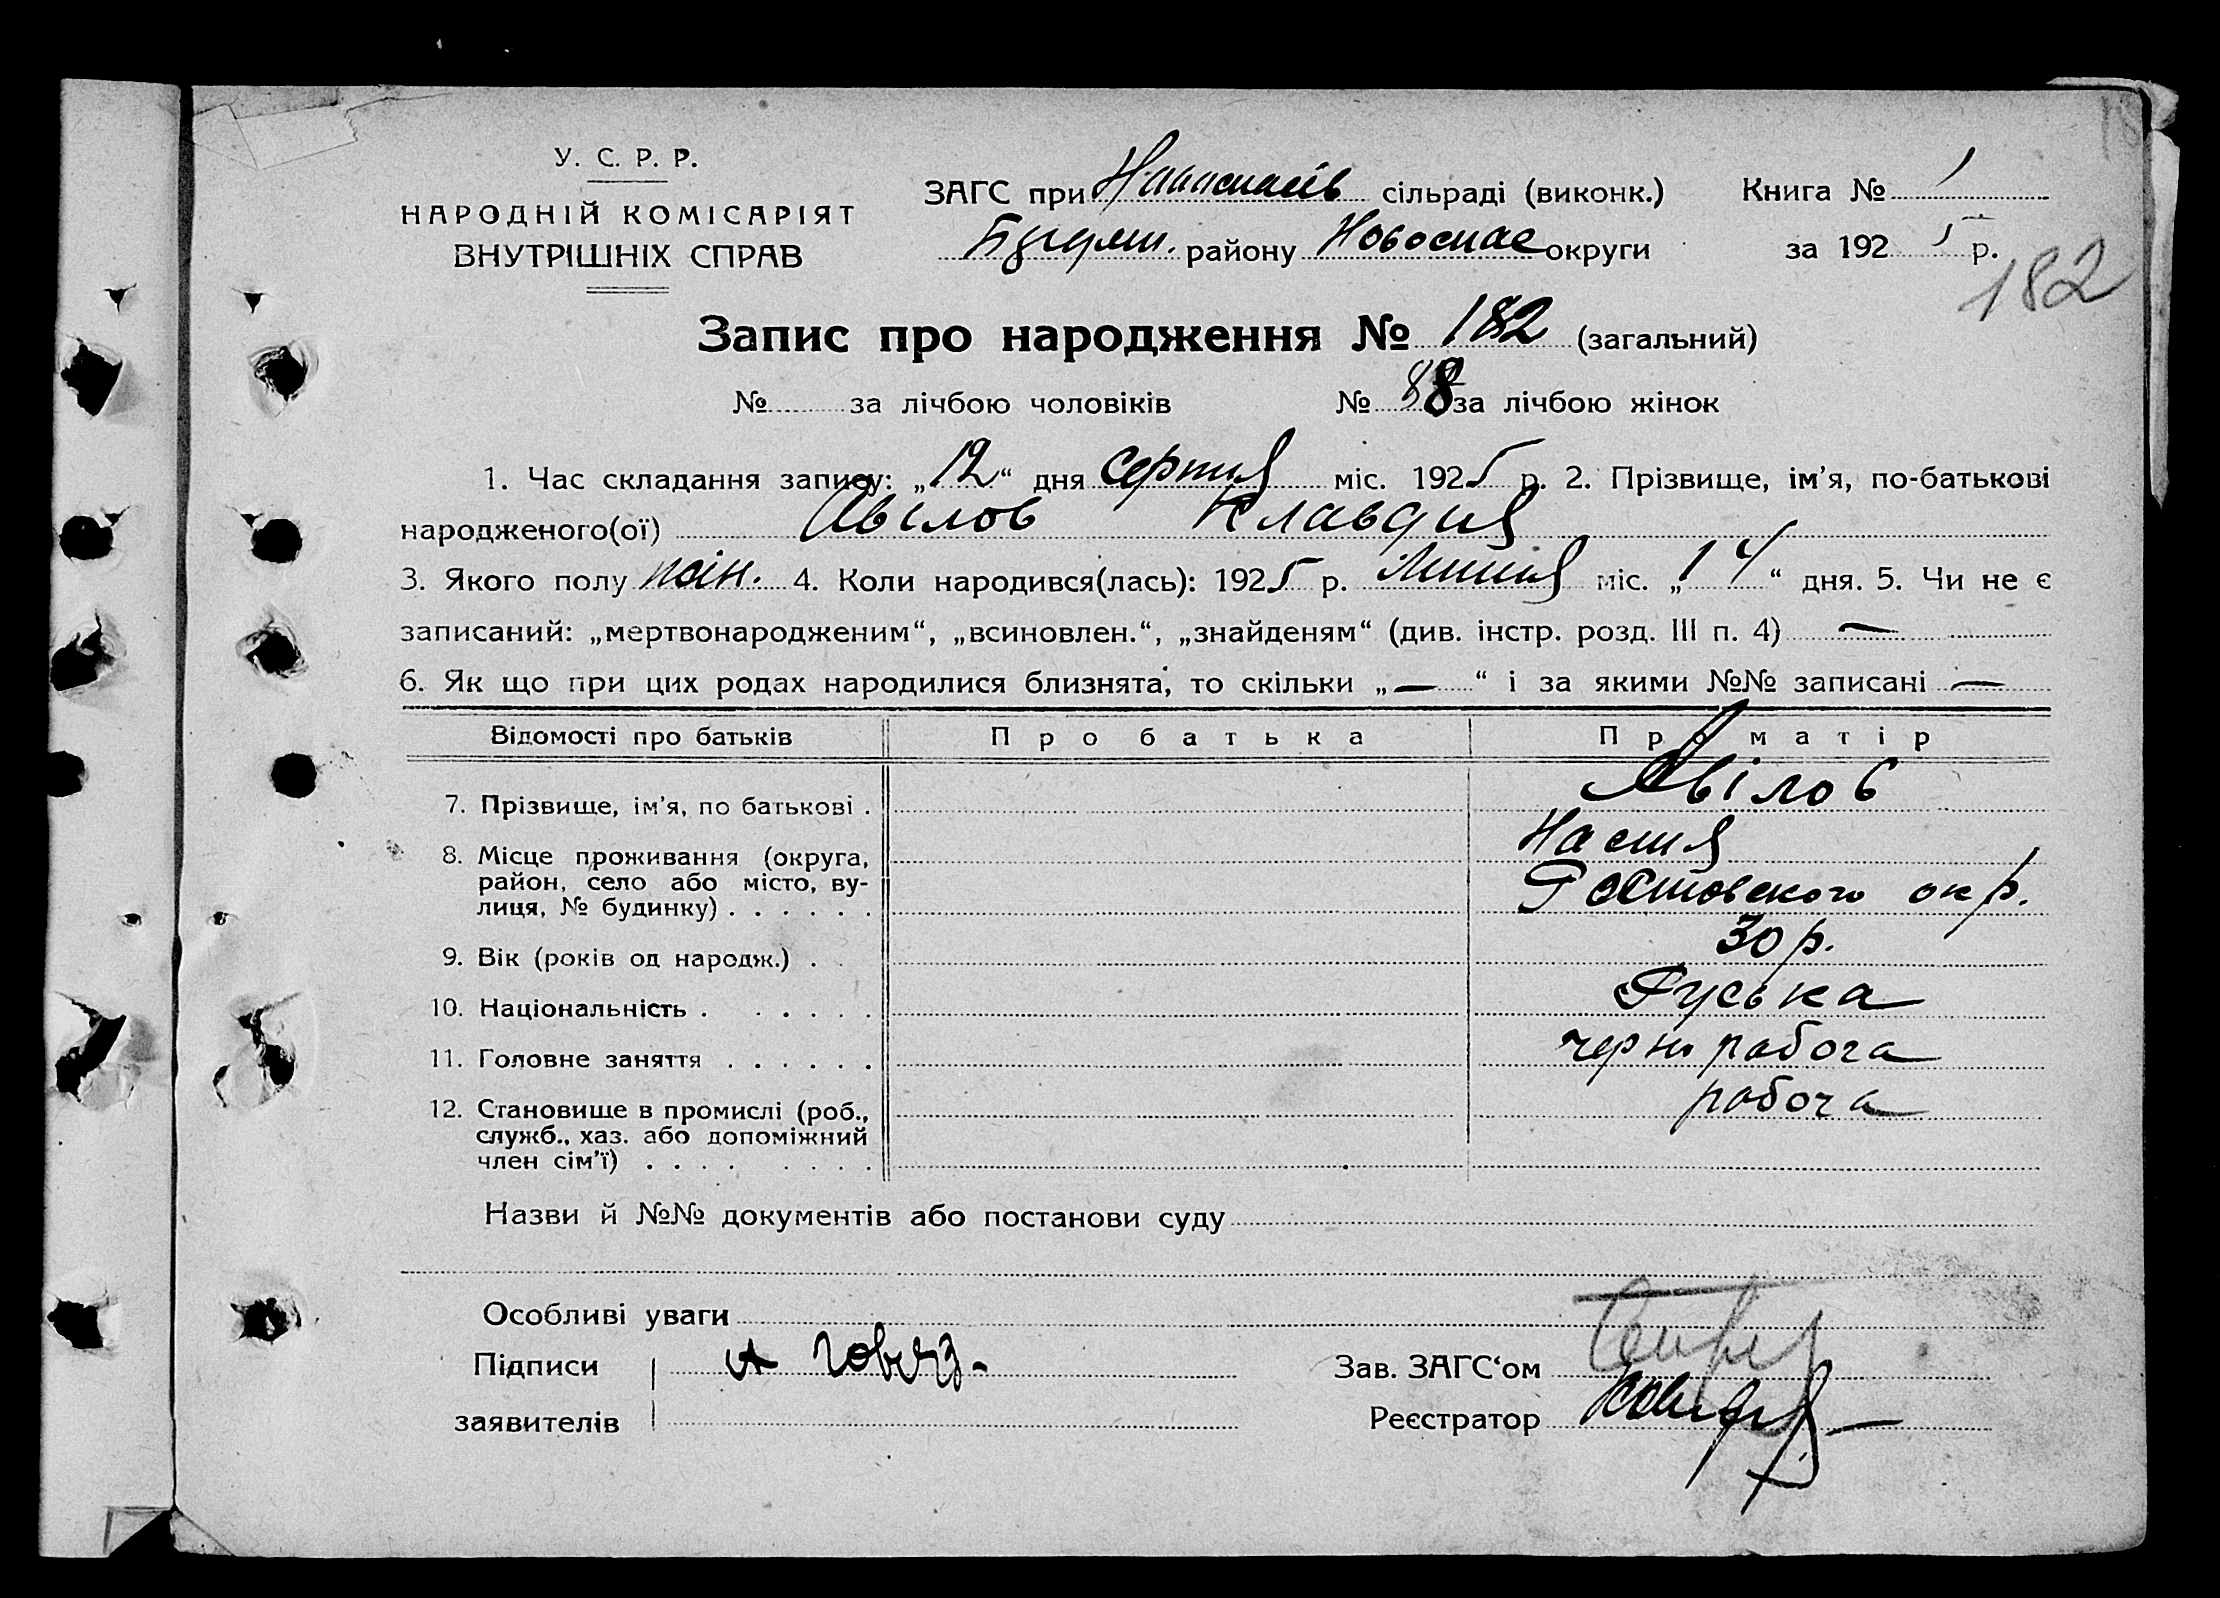 У. С. Р. Р.
НАРОДНІЙ КОМІСАРІЯТ
ВНУТРІШНІХ СПРАВ
ЗАГС при Новоспасів сільраді (виконк.) Книга № 1
району Новоспас округи за 1925 р.
182
Запис про народження № 182 (загальний)
№ за лічбою чоловіків № 88 за лічбою жінок
1. Час складання запису: „12“ дня серпня міс. 1925 р. 2. Прізвище, ім’я, по-батькові
народженого(ої) Авілов Клавдия
3. Якого полу жін. 4. Коли народився(лась): 1925 р. Липня міс. „14“ дня. 5. Чи не є
записаний: „мертвонародженим“, „всиновлен.“, „знайденям“ (див. інстр. розд. III п. 4) —
6. Як що при цих родах народилися близнята, то скільки „—“ і за якими №№ записані —
Відомості про батьків Про батька Про матір
7. Прізвище, ім’я, по батькові . Авілов
Настя
8. Місце проживання (округа,
район, село або місто, ву-
лиця, № будинку) . . . . . . Ростовского окр.
9. Вік (років од народж.) . 30 р.
10. Національність . . . . . . Руська
11. Головне заняття . . . . . . черно робоча
12. Становище в промислі (роб.,
служб., хаз. або допоміжний
член сім’ї) . . . . . . . . робоча
Назви й №№ документів або постанови суду
Особливі уваги
Підписи
заявителів
Зав. ЗАГС‘ом
Реєстратор